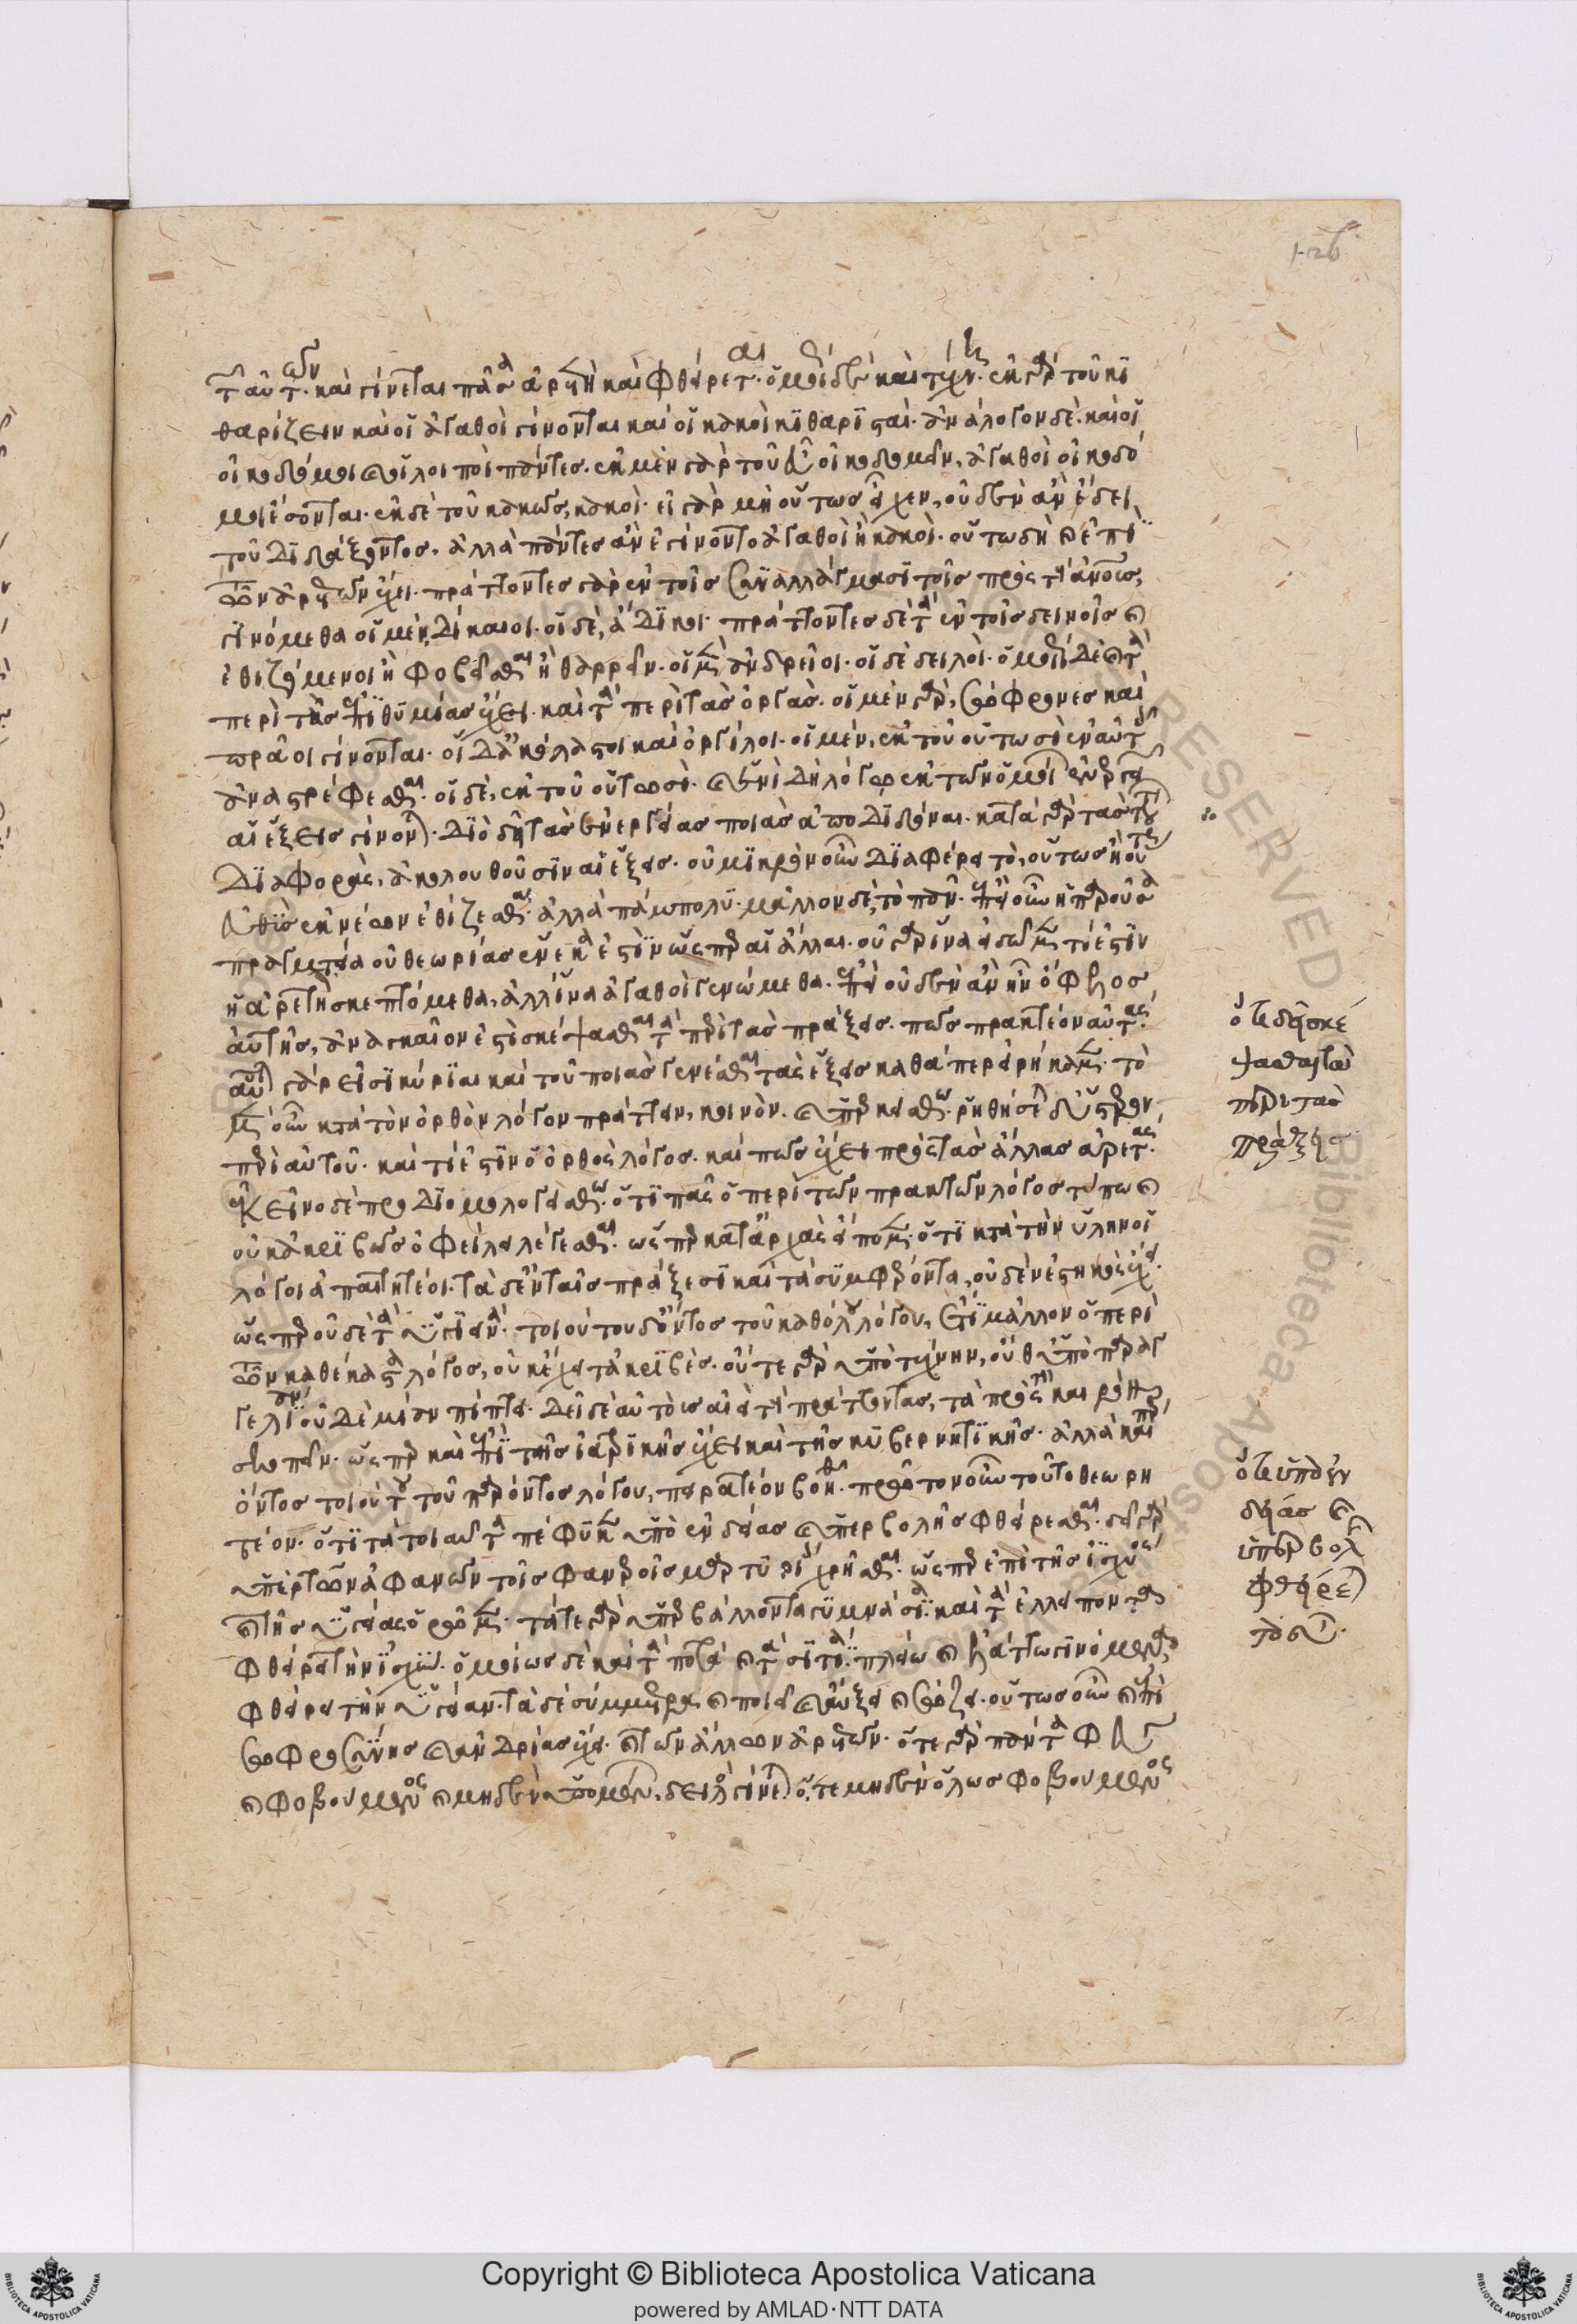 τῶν αὐτῶν· καὶ γίνεται πᾶσα ἀρετὴ καὶ φθείρεται· ὁμοίως δὲ καὶ τέχνη· ἐκ γὰρ τοῦ κι
θαρίζειν καὶ οἱ ἀγαθοὶ γίνονται καὶ οἱ κακοὶ κιθαρισταί· ἀνάλογον δὲ καὶ οἱ
οἰκοδόμοι καὶ οἱ λοιποὶ πάντες· ἐκ μὲν γὰρ τοῦ εὖ οἰκοδομεῖν, ἀγαθοὶ οἰκοδό
μοι ἔσονται· ἐκ δὲ τοῦ κακῶς, κακοί· εἰ γὰρ μὴ οὕτως εἶχεν, οὐδὲν ἂν ἔδει
τοῦ διδάξοντος, ἀλλὰ πάντες ἂν ἐγίνοντο ἀγαθοὶ ἢ κακοί· οὕτω δὴ καὶ ἐπὶ
τῶν ἀρετῶν ἔχει· πράττοντες γὰρ ἐν τοῖς συναλλάγμασι τοῖς πρὸς τοὺς ἀνθρώπους,
γινόμεθα οἱ μὲν δίκαιοι· οἱ δὲ, ἄδικοι· πράττοντες δὲ τὰ ἐν τοῖς δεινοῖς καὶ
ἐθιζόμενοι ἢ φοβεῖσθαι ἢ θαρρεῖν· οἱ μὲν ἀνδρεῖοι· οἱ δὲ δειλοί· ὁμοίως δὲ καὶ τὰ
περὶ τὰς ἐπιθυμίας ἔχει· καὶ τὰ περὶ τὰς ὀργάς· οἱ μὲν γὰρ, σώφρονες καὶ
πρᾶοι γίνονται· οἱ δ' ἀκόλαστοι καὶ ὀργίλοι· οἱ μὲν, ἐκ τοῦ οὑτωσὶ ἐν αὐτοῖς
ἀναστρέφεσθαι· οἱ δὲ, ἐκ τοῦ οὑτωσί· καὶ ἑνὶ δὴ λόγῳ ἐκ τῶν ὁμοίων ἐνεργειῶν
αἱ ἕξεις γίνονται· διὸ δεῖ τὰς ἐνεργείας ποιὰς ἀποδιδόναι· κατὰ γὰρ τὰς τούτων
διαφορὰς, ἀκολουθοῦσιν αἱ ἕξεις· οὐ μικρὸν οὖν διαφέρει τὸ, οὕτως ἢ οὕτως
εὐθὺς ἐκ νέων ἐθίζεσθαι· ἀλλὰ πάμπολυ· μᾶλλον δὲ, τὸ πᾶν· ἐπεὶ οὖν ἡ παροῦσα
πραγματεία οὐ θεωρίας ἕνεκά ἐστιν ὥσπερ αἱ ἄλλαι· οὐ γὰρ ἵνα εἰδῶμεν τί ἐστιν
ἡ ἀρετὴ σκεπτόμεθα, ἀλλ' ἵνα ἀγαθοὶ γενώμεθα· ἐπεὶ οὐδὲν ἂν ἦν ὄφελος
αὐτῆς, ἀναγκαῖόν ἐστι σκέψασθαι τὰ περὶ τὰς πράξεις· πῶς πρακτέον αὐτάς·
αὗται γάρ εἰσι κύριαι καὶ τοῦ ποιὰς γενέσθαι τὰς ἕξεις καθάπερ εἰρήκαμεν· τὸ
μὲν οὖν κατὰ τὸν ὀρθὸν λόγον πράττειν, κοινόν· καὶ ὑποκείσθω· ῥηθήσεται δ' ὕστερον
περὶ αὐτοῦ· καὶ τί ἐστιν ὁ ὀρθὸς λόγος· καὶ πῶς ἔχει πρὸς τὰς ἄλλας ἀρετάς·
ἐκεῖνο δὲ προδιομολογείσθω· ὅτι πᾶς ὁ περὶ τῶν πρακτῶν λόγος τύπῳ καὶ
οὐκ ἀκριβῶς ὀφείλει λέγεσθαι· ὥσπερ κατ' ἀρχὰς εἴπομεν· ὅτι κατὰ τὴν ὕλην οἱ
λόγοι ἀπαιτητέοι· τὰ δ' ἐν ταῖς πράξεσι καὶ τὰ συμφέροντα, οὐδὲν ἑστηκὸς ἔχει·
ὥσπερ οὐδὲ τὰ ὑγιεινά· τοιούτου δ' ὄντος τοῦ καθόλου λόγου, ἔτι μᾶλλον ὁ περὶ
τῶν καθ' ἕκαστα λόγος, οὐκ ἔχει τἀκριβές· οὔτε γὰρ ὑπὸ τέχνην, οὔθ' ὑπὸ παραγ
γελίαν οὐδεμίαν πίπτει· δεῖ δὲ αὐτοὺς αἰεὶ τοὺς πράττοντας, τὰ πρὸς τὸν καιρὸν
σκοπεῖν· ὥσπερ καὶ ἐπὶ τῆς ἰατρικῆς ἔχει καὶ τῆς κυβερνητικῆς· ἀλλὰ καίπερ
ὄντος τοιούτου τοῦ παρόντος λόγου, πειρατέον βοηθεῖν· πρῶτον οὖν τοῦτο θεωρη
τέον· ὅτι τὰ τοιαῦτα πέφυκεν ὑπὸ ἐνδείας καὶ ὑπερβολῆς φθείρεσθαι· δεῖ γὰρ
ὑπὲρ τῶν ἀφανῶν τοῖς φανεροῖς μαρτυρίοις χρῆσθαι· ὥσπερ ἐπὶ τῆς ἰσχύος
καὶ τῆς ὑγιείας ὁρῶμεν· τά τε γὰρ ὑπερβάλλοντα γυμνάσια· καὶ τὰ ἐλλείποντα
φθείρει τὴν ἰσχύν· ὁμοίως δὲ καὶ τὰ ποτὰ καὶ τὰ σιτία· πλείω καὶ ἐλάττω γινόμενα,
φθείρει τὴν ὑγίειαν· τὰ δὲ σύμμετρα, καὶ ποιεῖ καὶ αὔξει καὶ σώζει· οὕτως οὖν καὶ ἐπὶ
σωφροσύνης καὶ ἀνδρίας ἔχει· καὶ τῶν ἄλλων ἀρετῶν· ὅ τε γὰρ πάντα φεύγων
καὶ φοβούμενος καὶ μηδὲν ὑπομένων, δειλὸς γίνεται· ὅ, τε μηδὲν ὅλως φοβούμενος
ὅτι δεῖ σκέ
ψασθαι τὰ
περὶ τὰς
πράξεις
ὅτι ὑπὸ ἐν
δείας καὶ
ὑπερβολῆς
φθείρεται